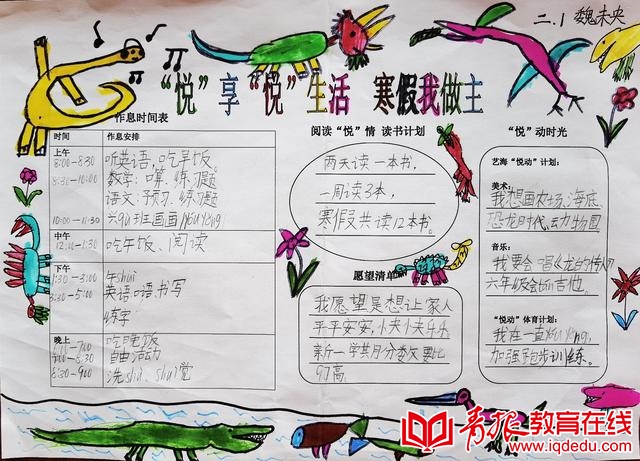 二.1 魏未央
“悦”享“悦”生活 寒假我做主
作息时间表
时间 作息安排
上午
8:00-8:30 听英语,吃早饭
8:30-10:00 数学:口算、练习题
语文:预习、练习题
10:00-11:30
中午
吃午饭、阅读
下午
1:30-3:00 午shuì
3:30-5:00 英语:口语、书写
练字
晚上
吃晚饭
自由活动
8:30-9:00 洗shù、shuì觉
阅读“悦”情 读书计划
两天读一本书,
一周读3本,
寒假共读12本书。
愿望清单
我愿望是想让家人
平平安安,快快乐乐
新一学其月分数要比
97高
“悦”动时光
艺海“悦动”计划:
美术:
我想画农场、海底
恐龙时代、动物园
音乐:
我要会唱《龙的传人》
六年级会弹吉他。
“悦动”体育计划:
我在一直
加强跑步训练。
青报教育在线
www.iqdedu.com